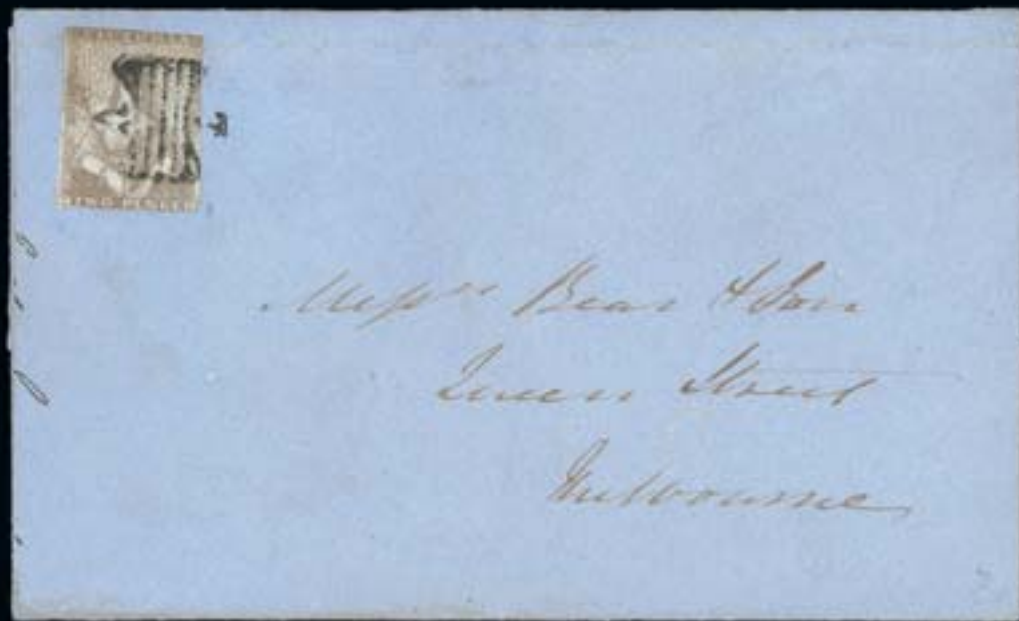 TWO PENCE
Messrs Bear & Son
Queen Street
Melbourne